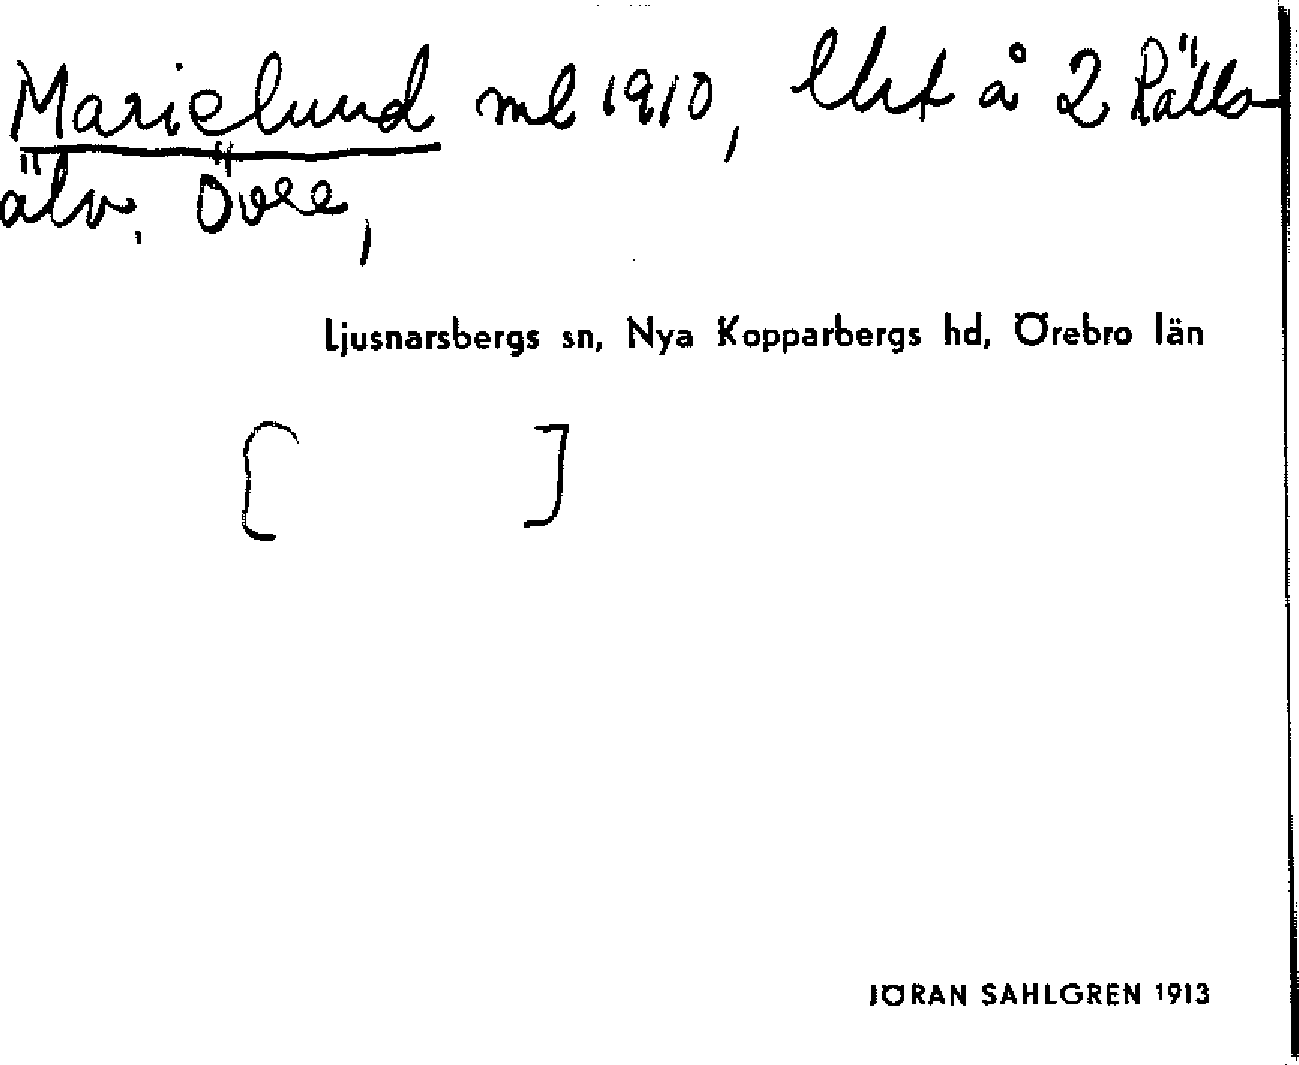 Marielund ml 1910, lht å 2 Rälls-
älv. Övre,
Ljusnarsbergs sn, Nya Kopparbergs hd, Örebro län
[ ]
JÖRAN SAHLGREN 1913